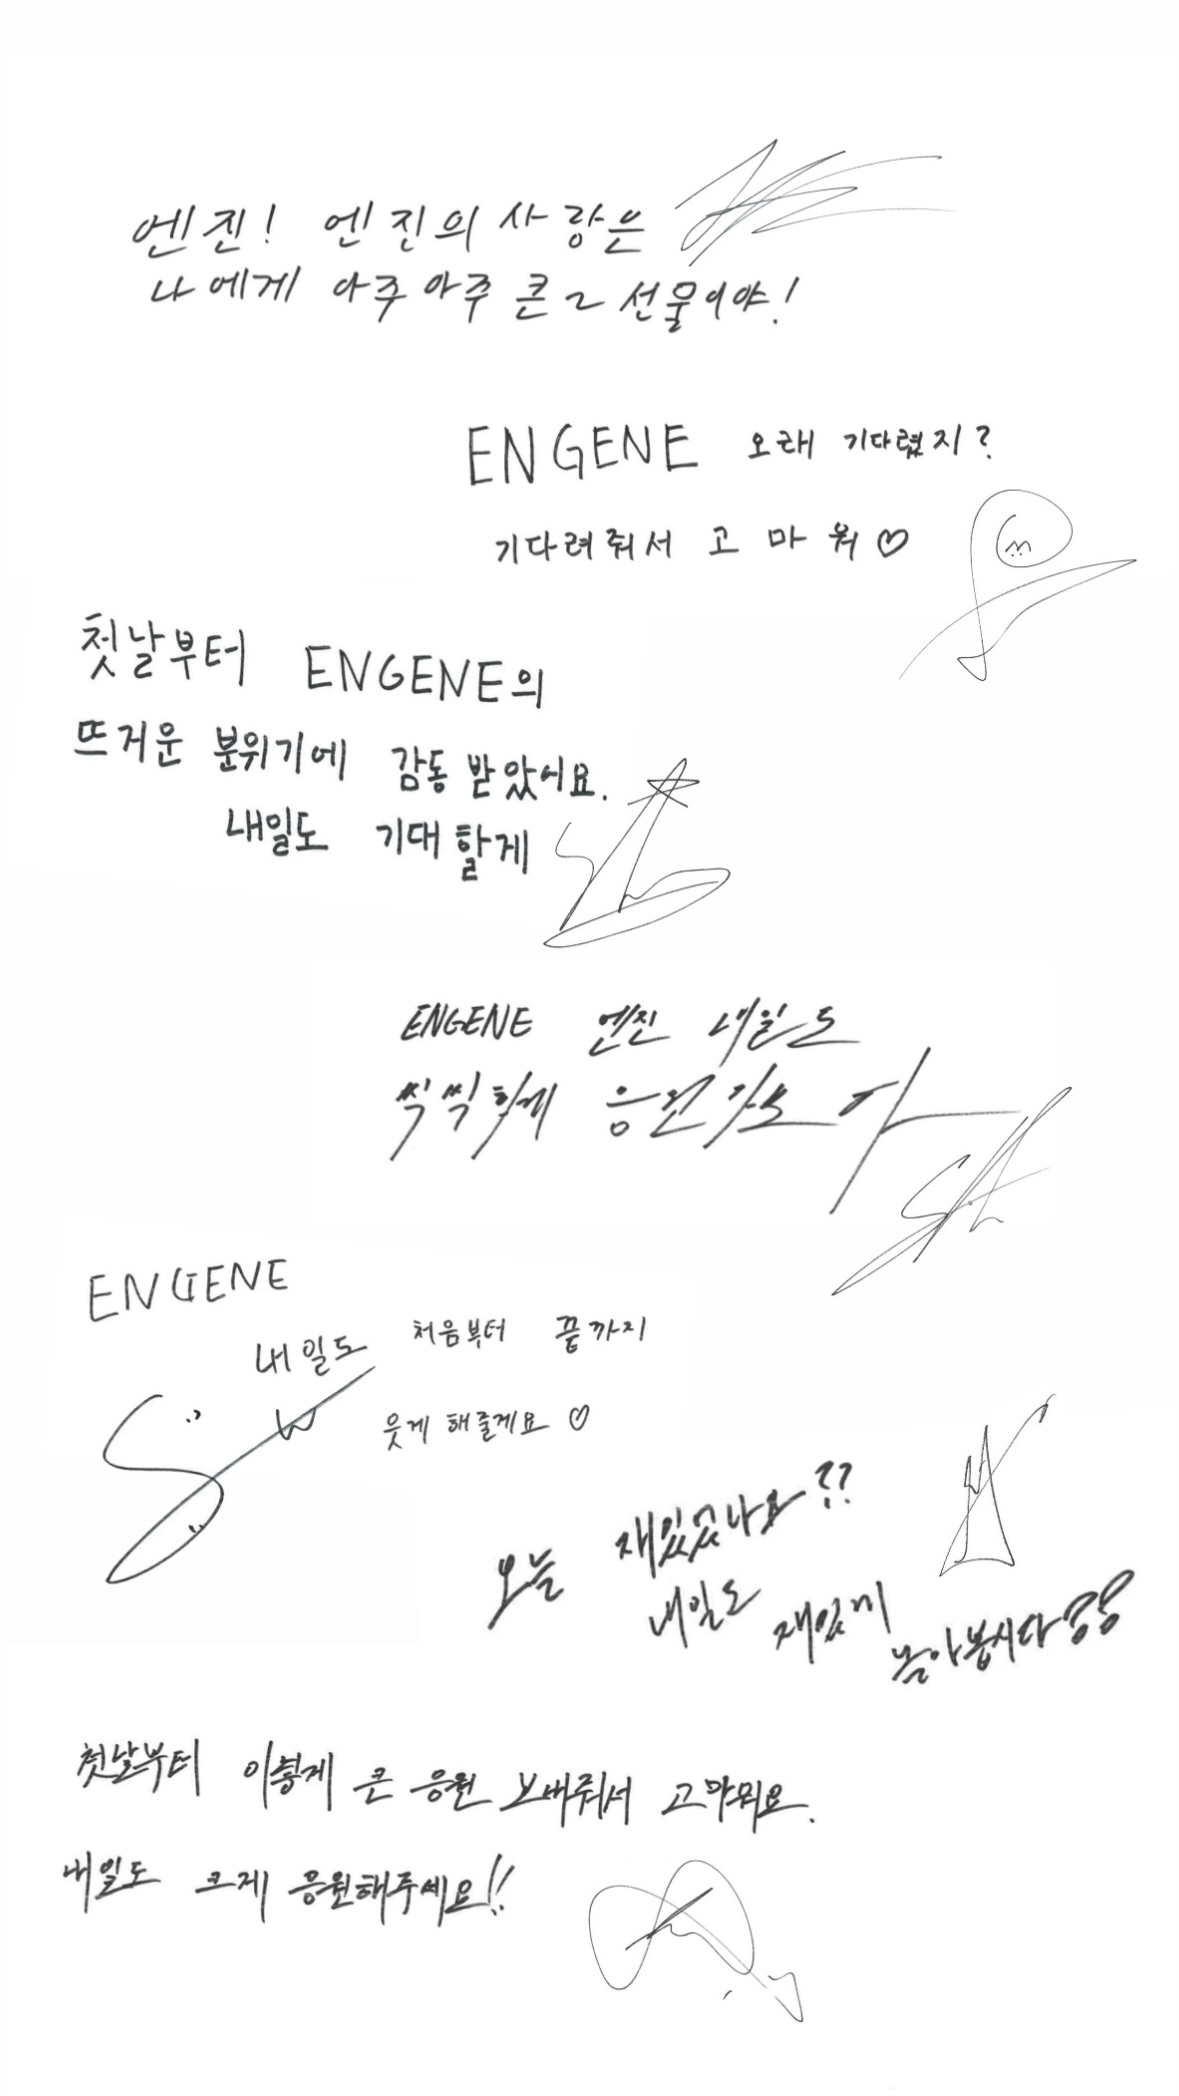 엔진! 엔진의 사랑은
나에게 아주 아주 큰 선물이야!
ENGENE 오래 기다렸지?
기다려줘서 고마워♡
첫날부터 ENGENE의
뜨거운 분위기에 감동 받았어요.
내일도 기대할게
ENGENE 엔진 내일도
씩씩하게 응원가보자
ENGENE
내일도 처음부터 끝까지
웃게 해줄게요♡
오늘 재밌었나요??
내일도 재밌게 놀아봅시다
첫날부터 이렇게 큰 응원 보내줘서 고마워요.
내일도 크게 응원해주세요!!